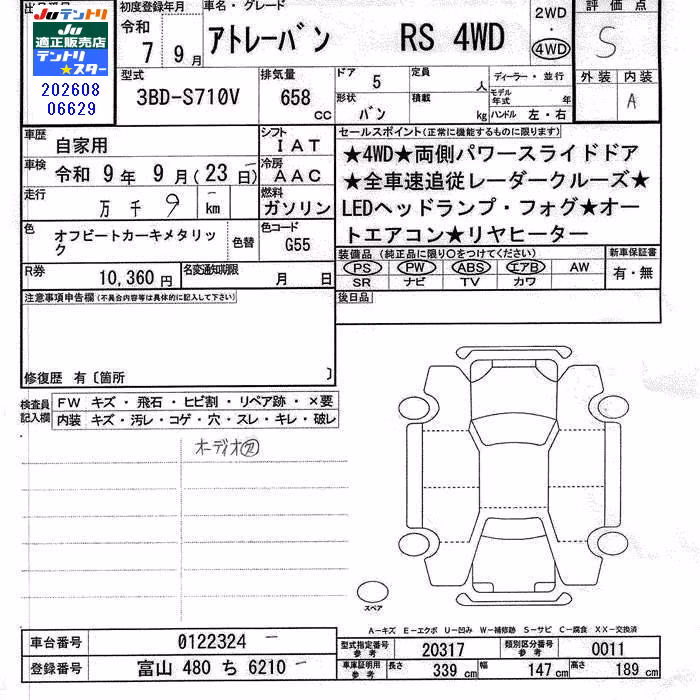 JU テントリ
JU
適正販売店
テントリ
★スター
202608
06629
初度登録年月
令和
7 9月
車名・グレード
アトレーバン RS 4WD
2WD
・
4WD
評価点
S
型式
3BD-S710V
排気量
658
cc
ドア
5
定員
人
形状
バン
積載
kg
ディーラー・並行
モデル年式
年
ハンドル 左・右
外装 内装
A
車歴
自家用
シフト
IAT
車検
令和 9年 9月(23日)
冷房
AAC
走行
万 千 9
km
燃料
ガソリン
色
オフビートカーキメタリック
色替
色コード
G55
R券
10,360円
名変通知期限
月 日
セールスポイント(正常に機能するものに限ります)
★4WD★両側パワースライドドア
★全車速追従レーダークルーズ★
LEDヘッドランプ・フォグ★オー
トエアコン★リヤヒーター
装備品(純正品に限り○をつけてください)
PS PW ABS エアB AW
SR ナビ TV カワ
新車保証書
有・無
後日品
注意事項申告欄(不具合内容等は具体的に記入して下さい)
修復歴 有〔箇所 〕
検査員
記入欄
FW キズ・飛石・ヒビ割・リペア跡・×要
内装 キズ・汚レ・コゲ・穴・スレ・キレ・破レ
オーディオ
スペア
A-キズ E-エクボ U-凹み W-補修跡 S-サビ C-腐食 XX-交換済
車台番号
0122324
登録番号
富山 480 ち 6210
型式指定番号
参考
20317
類別区分番号
参考
0011
車庫証明用
参考
長さ
339 cm
幅
147 cm
高さ
189 cm